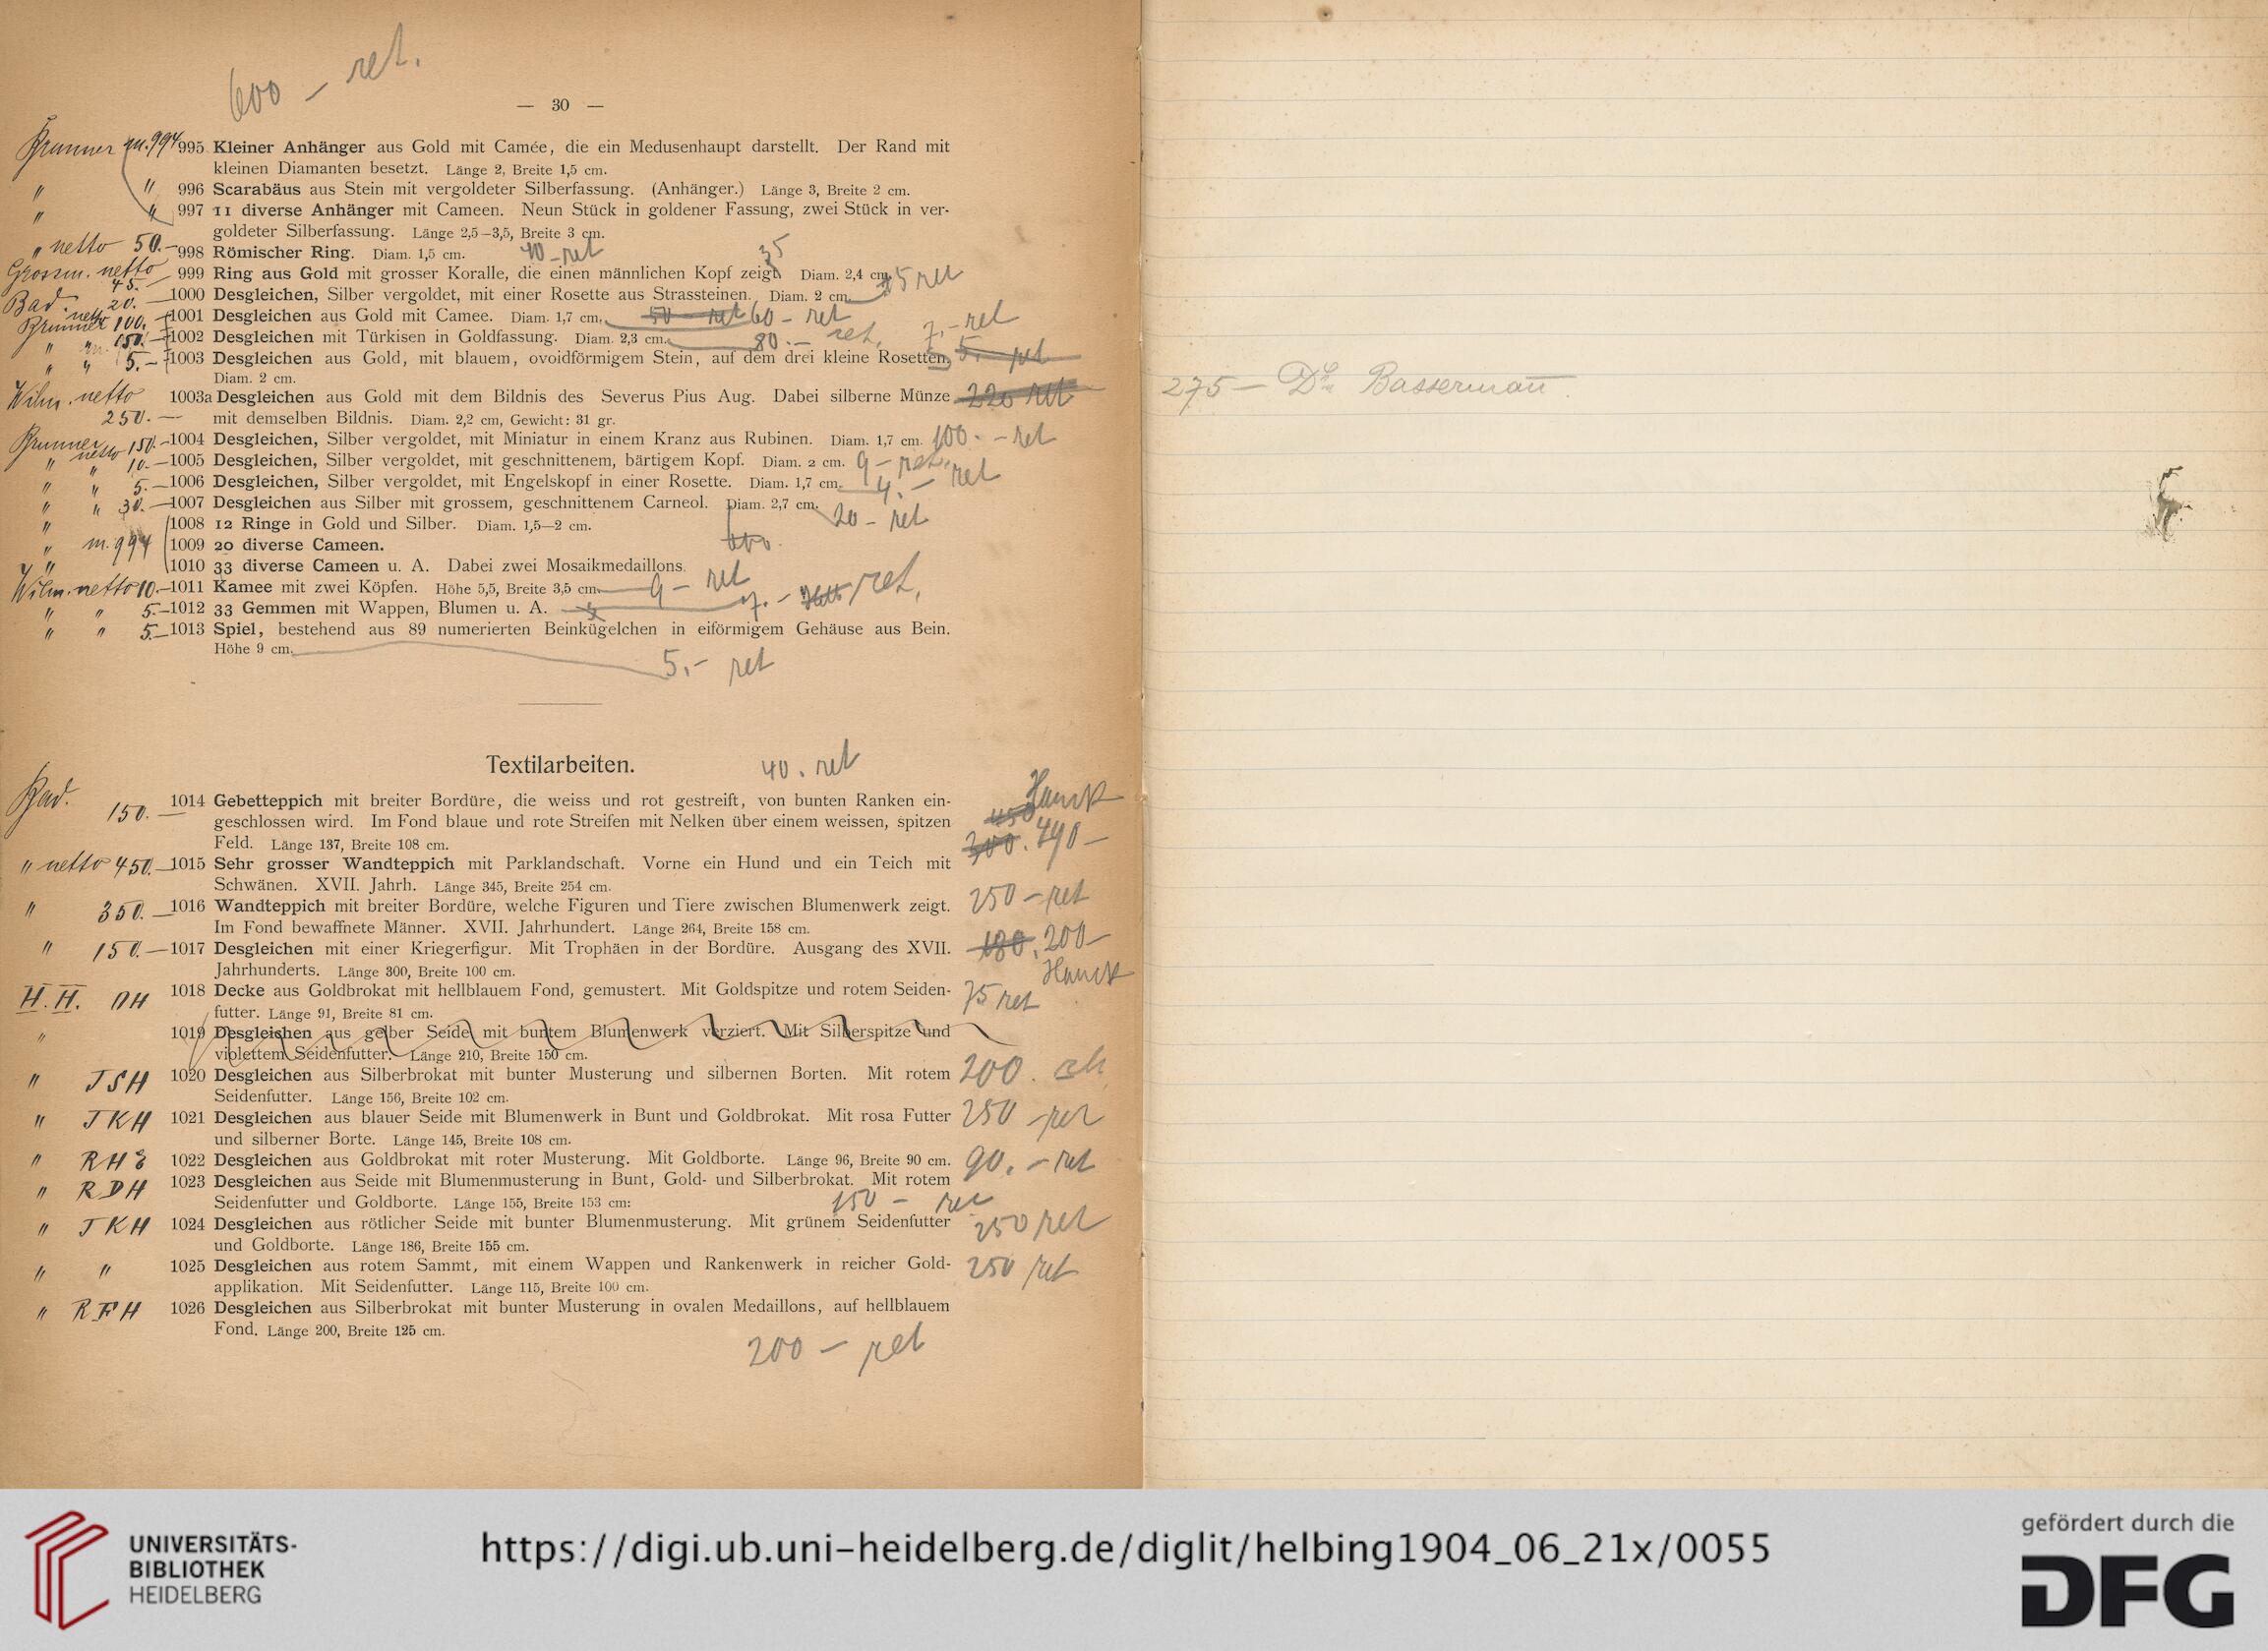 600 – ret.
— 30 —
Brunner m. 994 995 Kleiner Anhänger aus Gold mit Camée, die ein Medusenhaupt darstellt. Der Rand mit
kleinen Diamanten besetzt. Länge 2, Breite 1,5 cm.
" " 996 Scarabäus aus Stein mit vergoldeter Silberfassung. (Anhänger.) Länge 3, Breite 2 cm.
" " 997 11 diverse Anhänger mit Cameen. Neun Stück in goldener Fassung, zwei Stück in ver-
goldeter Silberfassung. Länge 2,5–3,5, Breite 3 cm.
" netto 50.– 998 Römischer Ring. Diam. 1,5 cm. 40 – ret 35
Grossm. netto 45.– 999 Ring aus Gold mit grosser Koralle, die einen männlichen Kopf zeigt. Diam. 2,4 cm.
Bad. 20.– 1000 Desgleichen, Silber vergoldet, mit einer Rosette aus Strassteinen. Diam. 2 cm. 15 ret
Brunner netto 100.– 1001 Desgleichen aus Gold mit Camee. Diam. 1,7 cm. 50 – ret 60 – ret
" " 150.– 1002 Desgleichen mit Türkisen in Goldfassung. Diam. 2,3 cm. 80.– ret. 7.– ret
" " 5.– 1003 Desgleichen aus Gold, mit blauem, ovoidförmigem Stein, auf dem drei kleine Rosetten. 5.– ret
Diam. 2 cm.
Wilm. netto 1003a Desgleichen aus Gold mit dem Bildnis des Severus Pius Aug. Dabei silberne Münze 220 ret
250.— mit demselben Bildnis. Diam. 2,2 cm, Gewicht: 31 gr.
275 – Dr. Bassermann.
Brunner netto 150.– 1004 Desgleichen, Silber vergoldet, mit Miniatur in einem Kranz aus Rubinen. Diam. 1,7 cm. 100.– ret
" " 10.– 1005 Desgleichen, Silber vergoldet, mit geschnittenem, bärtigem Kopf. Diam. 2 cm. 9 – ret.
" " 5.– 1006 Desgleichen, Silber vergoldet, mit Engelskopf in einer Rosette. Diam. 1,7 cm. 4.– ret
" " 30.– 1007 Desgleichen aus Silber mit grossem, geschnittenem Carneol. Diam. 2,7 cm. 20 – ret
" 1008 12 Ringe in Gold und Silber. Diam. 1,5—2 cm.
" m. 994 1009 20 diverse Cameen. 600.
" " 1010 33 diverse Cameen u. A. Dabei zwei Mosaikmedaillons.
Wilm. netto 10.– 1011 Kamee mit zwei Köpfen. Höhe 5,5, Breite 3,5 cm. 9 – ret
" " 5.– 1012 33 Gemmen mit Wappen, Blumen u. A. 7.– ret.
" " 5.– 1013 Spiel, bestehend aus 89 numerierten Beinkügelchen in eiförmigem Gehäuse aus Bein.
Höhe 9 cm. 5.– ret
Textilarbeiten. 40. ret
Bad. 150.— 1014 Gebetteppich mit breiter Bordüre, die weiss und rot gestreift, von bunten Ranken ein-
geschlossen wird. Im Fond blaue und rote Streifen mit Nelken über einem weissen, spitzen
Feld. Länge 137, Breite 108 cm. 300. 490–
" netto 450.– 1015 Sehr grosser Wandteppich mit Parklandschaft. Vorne ein Hund und ein Teich mit
Schwänen. XVII. Jahrh. Länge 345, Breite 254 cm.
" 350.– 1016 Wandteppich mit breiter Bordüre, welche Figuren und Tiere zwischen Blumenwerk zeigt. 250 – ret
Im Fond bewaffnete Männer. XVII. Jahrhundert. Länge 264, Breite 158 cm.
" 150.– 1017 Desgleichen mit einer Kriegerfigur. Mit Trophäen in der Bordüre. Ausgang des XVII. 180. 200–
Jahrhunderts. Länge 300, Breite 100 cm.
H. H. 1018 Decke aus Goldbrokat mit hellblauem Fond, gemustert. Mit Goldspitze und rotem Seiden- 75 ret
futter. Länge 91, Breite 81 cm.
" 1019 Desgleichen aus gelber Seide mit buntem Blumenwerk verziert. Mit Silberspitze und
violettem Seidenfutter. Länge 210, Breite 150 cm.
" JSH 1020 Desgleichen aus Silberbrokat mit bunter Musterung und silbernen Borten. Mit rotem 200.
Seidenfutter. Länge 156, Breite 102 cm.
" JKH 1021 Desgleichen aus blauer Seide mit Blumenwerk in Bunt und Goldbrokat. Mit rosa Futter 250 – ret
und silberner Borte. Länge 145, Breite 108 cm.
" 1022 Desgleichen aus Goldbrokat mit roter Musterung. Mit Goldborte. Länge 96, Breite 90 cm. 90.– ret
" RDH 1023 Desgleichen aus Seide mit Blumenmusterung in Bunt, Gold- und Silberbrokat. Mit rotem
Seidenfutter und Goldborte. Länge 155, Breite 153 cm: 150 – ret
" JKH 1024 Desgleichen aus rötlicher Seide mit bunter Blumenmusterung. Mit grünem Seidenfutter 250 ret
und Goldborte. Länge 186, Breite 155 cm.
" " 1025 Desgleichen aus rotem Sammt, mit einem Wappen und Rankenwerk in reicher Gold- 250 ret
applikation. Mit Seidenfutter. Länge 115, Breite 100 cm.
" RFH 1026 Desgleichen aus Silberbrokat mit bunter Musterung in ovalen Medaillons, auf hellblauem
Fond. Länge 200, Breite 125 cm.
200 – ret
UNIVERSITÄTS-
BIBLIOTHEK
HEIDELBERG
https://digi.ub.uni-heidelberg.de/diglit/helbing1904_06_21x/0055
gefördert durch die
DFG